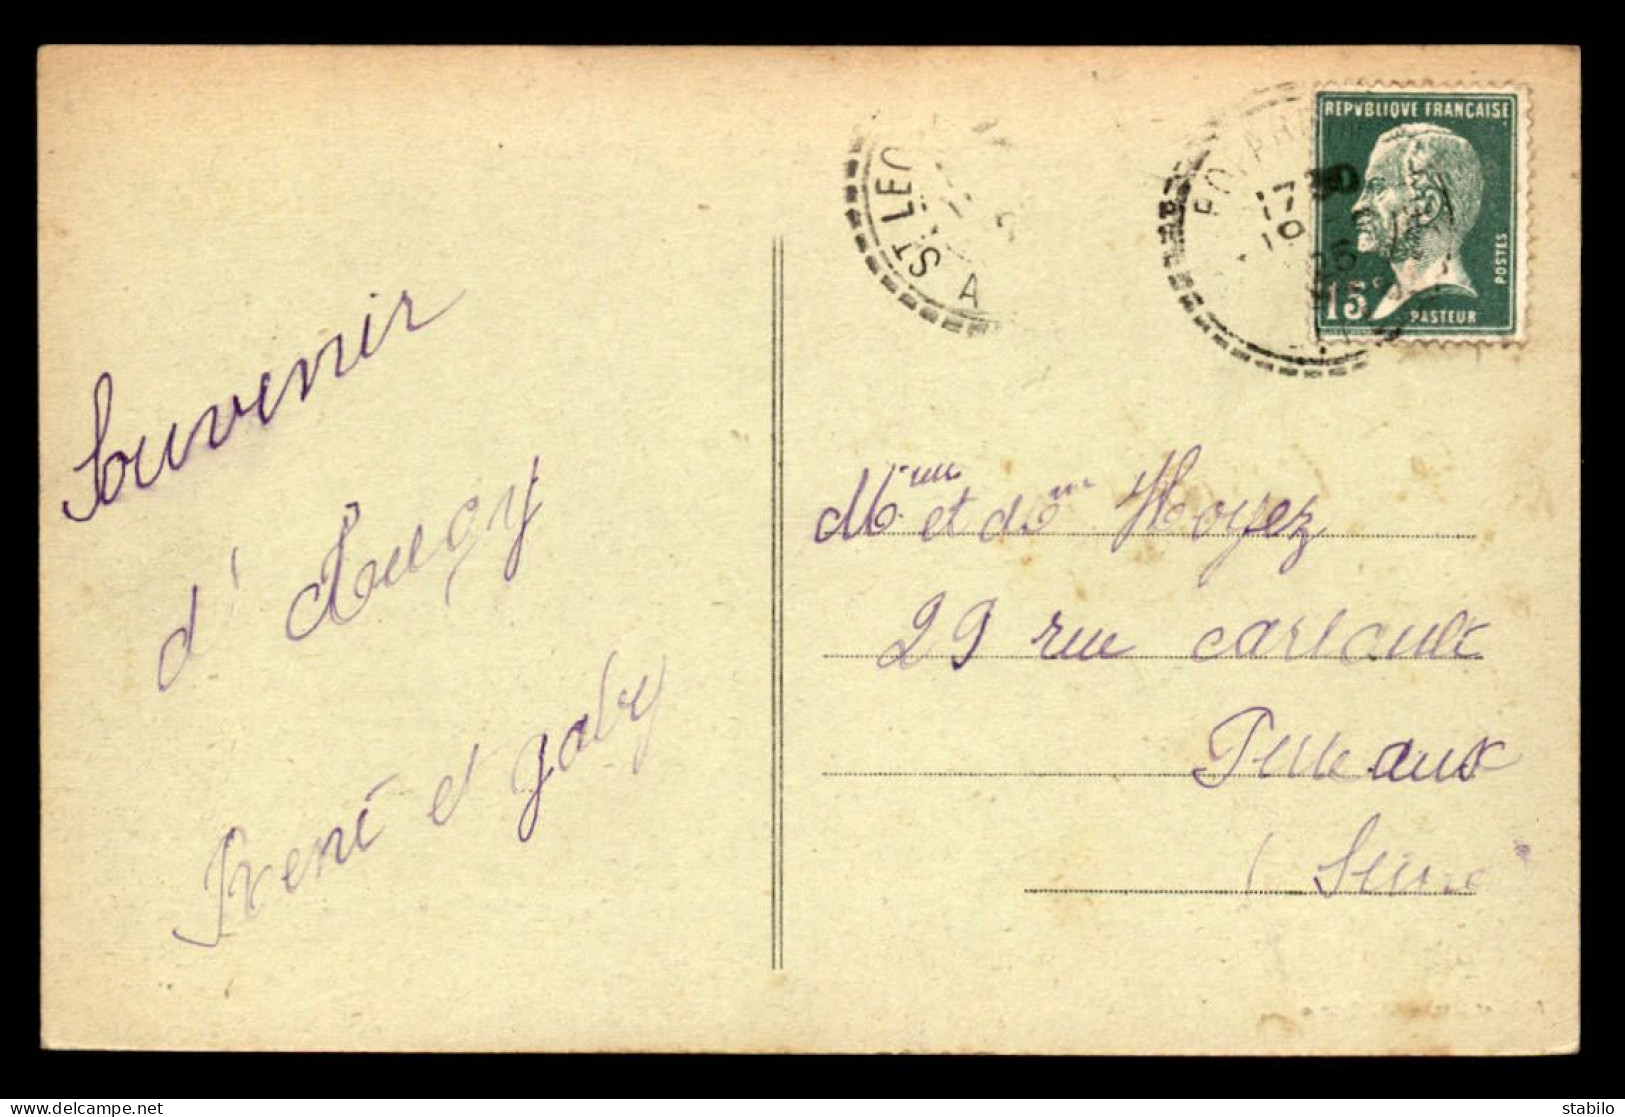 Souvenir
d'
René et gaby
ST LEO
A
17 30
19
REPVBLIQVE FRANÇAISE
POSTES
15c
PASTEUR
Mme et Mr Hoyez
29 rue carlault
Puteaux
(Seine
delcampe.net
stabilo